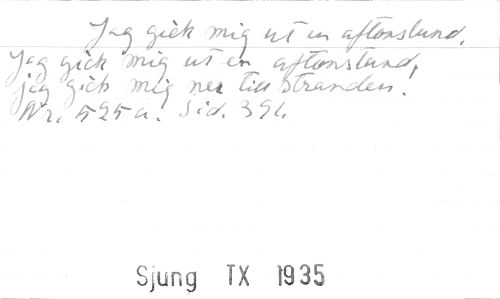 Jag gick mig ut en aftonstund.
Jag gick mig ut en aftonstund,
jag gick mig ner till stranden.
Nr. 525 a. Sid. 391.
Sjung TX 1935